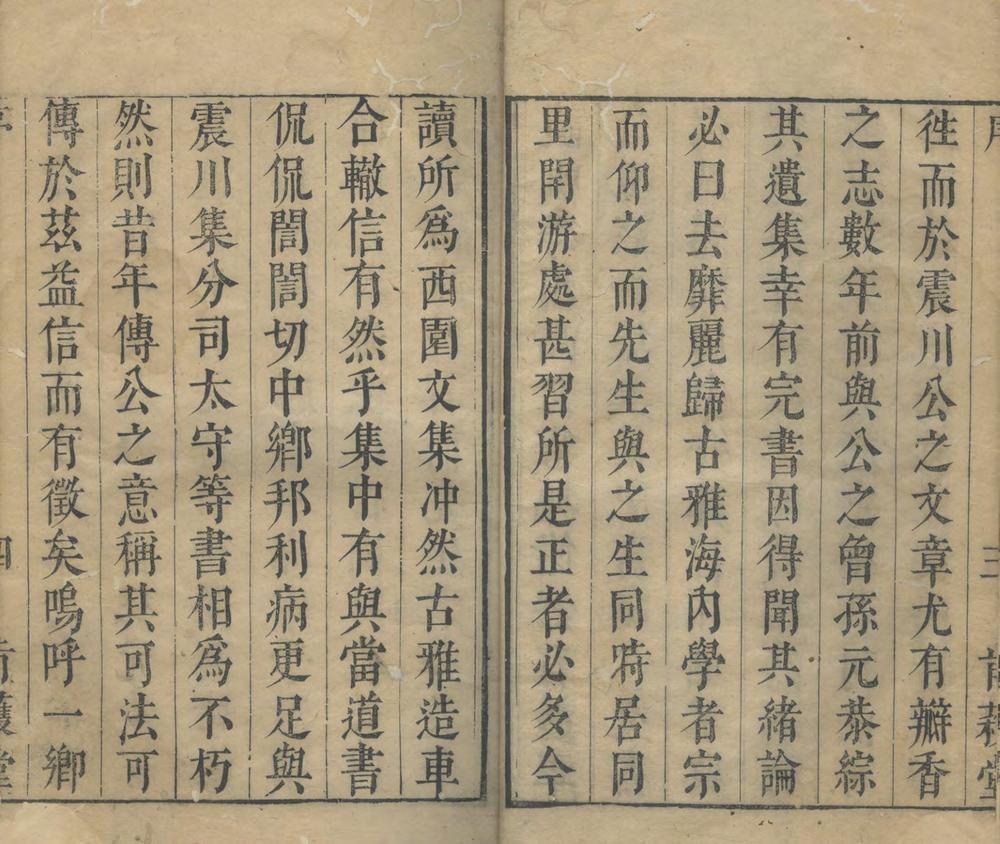 徃而於震川公之文章尤有瓣香
之志數年前與公之曾孫元恭綜
其遺集幸有完書因得聞其緒論
必曰去靡麗歸古雅海內學者宗
而仰之而先生與之生同時居同
里閈游處甚習所是正者必多今
讀所為西圃文集冲然古雅造車
合轍信有然乎集中有與當道書
侃侃誾誾切中鄉邦利病更足與
震川集分司太守等書相為不朽
然則昔年傳公之意稱其可法可
傳於茲益信而有徵矣嗚呼一鄉